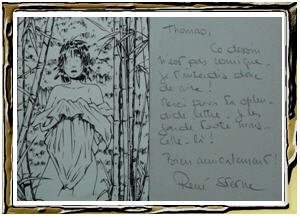 Thomas,
Ce dessin
n'est pas comique.
Je t'interdis donc
de rire!
Merci pour ta splen-
dide lettre. Je les
garde toutes mais
celle-là!
Bien amicalement!
René Sterne